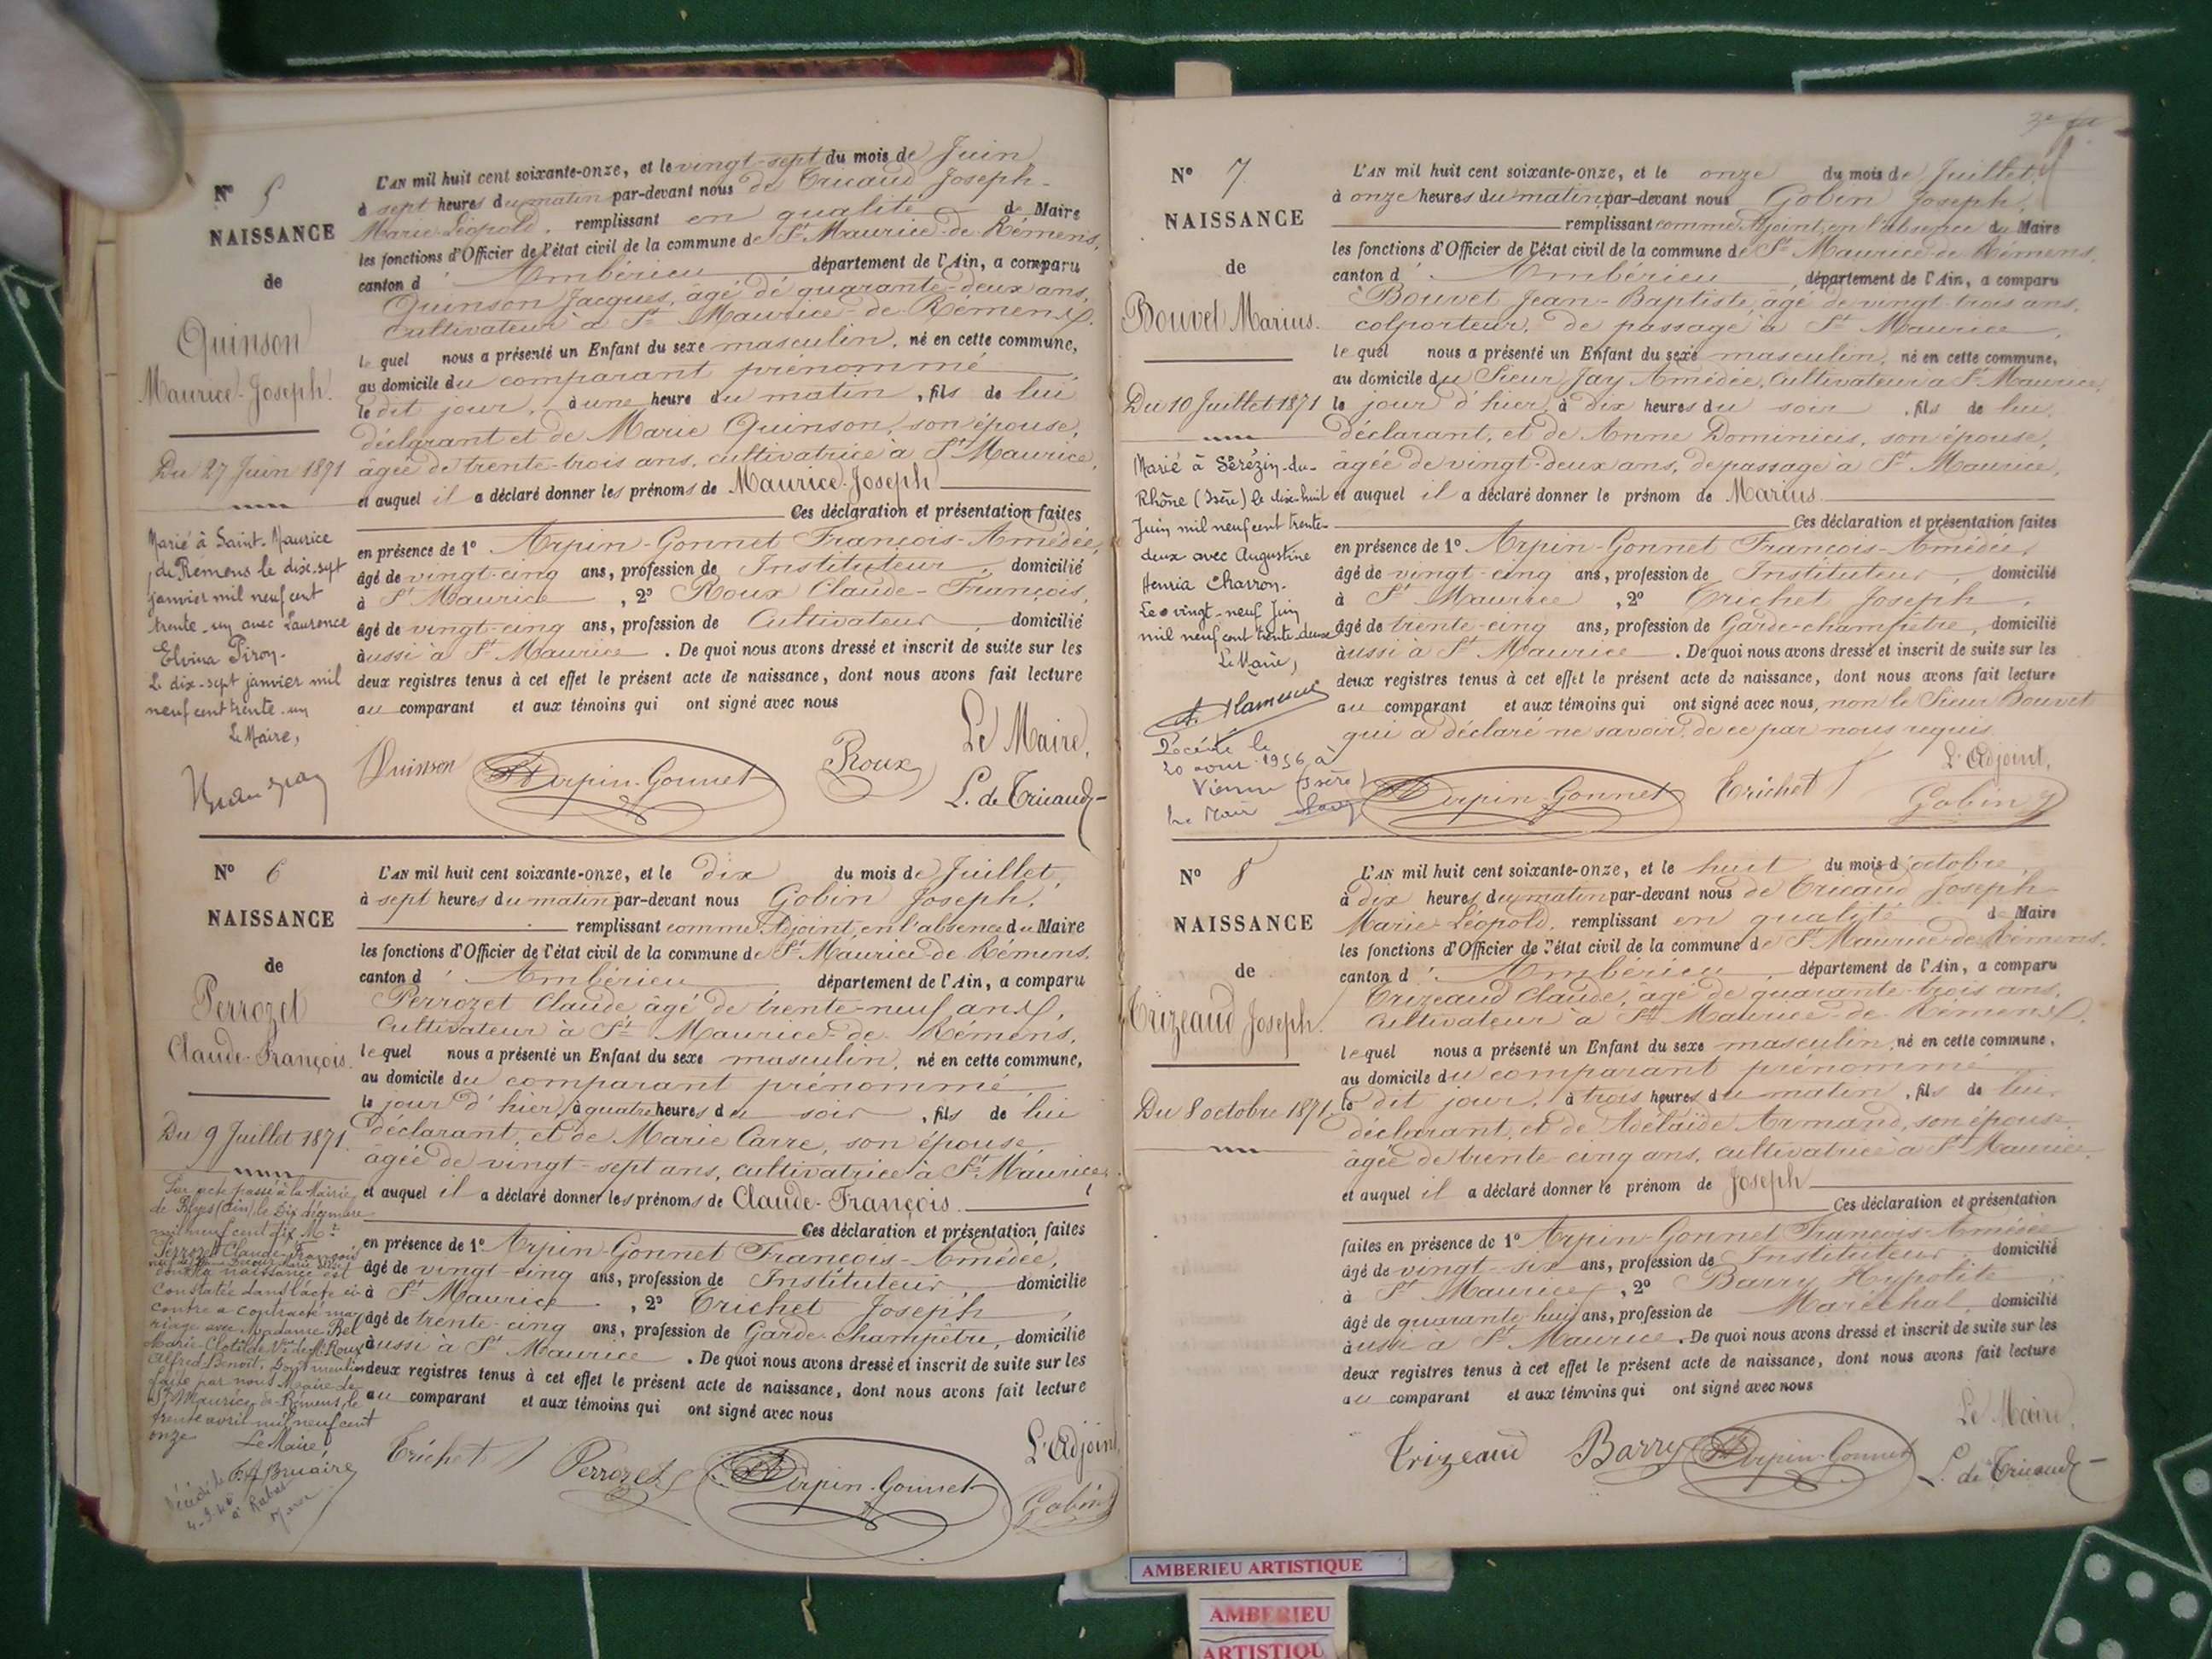 N° 5
NAISSANCE
de
Quinson
Maurice-Joseph.
Du 27 Juin 1871
Marié à Saint-Maurice
de Remens le dix-sept
janvier mil neuf cent
trente-un avec Laurence
Elvina Piron-
Le dix-sept janvier mil
neuf cent trente-un
Le Maire,
L'AN mil huit cent soixante-onze, et le vingt-sept du mois de Juin
à sept heures du matin par-devant nous de Tricaud Joseph-
Marie-Léopold, remplissant en qualité de Maire
les fonctions d'Officier de l'état civil de la commune de St Maurice-de-Rémens,
canton d'Ambérieu département de l'Ain, a comparu
Quinson Jacques, âgé de quarante-deux ans,
cultivateur à St Maurice-de-Rémens.
lequel nous a présenté un Enfant du sexe masculin, né en cette commune,
au domicile du comparant prénommé
le dit jour, à une heure du matin, fils de lui
déclarant et de Marie Quinson, son épouse,
âgée de trente-trois ans, cultivatrice à St Maurice,
et auquel il a déclaré donner les prénoms de Maurice-Joseph
Ces déclaration et présentation faites
en présence de 1° Arpin-Gonnet François-Amédée,
âgé de vingt-cinq ans, profession de Instituteur, domicilié
à St Maurice, 2° Roux Claude-François,
âgé de vingt-cinq ans, profession de Cultivateur, domicilié
aussi à St Maurice. De quoi nous avons dressé et inscrit de suite sur les
deux registres tenus à cet effet le présent acte de naissance, dont nous avons fait lecture
au comparant et aux témoins qui ont signé avec nous
Le Maire,
Quinson Arpin-Gonnet Roux L. de Tricaud
N° 6
NAISSANCE
de
Perrozet
Claude-François.
Du 9 Juillet 1871.
Par acte passé à la Mairie
de (Ain), le Dix décembre
mil neuf cent dix, Mr
Perrozet Claude-François
dont la naissance est
constatée dans l'acte ci-
contre a contracté ma-
riage avec Madame Bel
Marie-Clotilde Vve de Mr Roux
Alfred Benoît, Dont mention
faite par nous Maire de
St Maurice-de-Rémens, le
trente avril mil neuf cent
onze
Le Maire,
Décédé le
4-3-40
à Rabat
Maroc
L'AN mil huit cent soixante-onze, et le dix du mois de Juillet,
à sept heures du matin par-devant nous Gobin Joseph,
remplissant comme Adjoint, en l'absence du Maire
les fonctions d'Officier de l'état civil de la commune de St Maurice-de-Rémens,
canton d'Ambérieu département de l'Ain, a comparu
Perrozet Claude, âgé de trente-neuf ans,
Cultivateur à St Maurice-de-Rémens,
lequel nous a présenté un Enfant du sexe masculin, né en cette commune,
au domicile du comparant prénommé
le jour d'hier, à quatre heures du soir, fils de lui
déclarant, et de Marie Carre, son épouse,
âgée de vingt-sept ans, cultivatrice à St Maurice,
et auquel il a déclaré donner les prénoms de Claude-François.
Ces déclaration et présentation faites
en présence de 1° Arpin-Gonnet François-Amédée,
âgé de vingt-cinq ans, profession de Instituteur domicilié
à St Maurice, 2° Trichet Joseph,
âgé de trente-cinq ans, profession de Garde-champêtre, domicilié
aussi à St Maurice. De quoi nous avons dressé et inscrit de suite sur les
deux registres tenus à cet effet le présent acte de naissance, dont nous avons fait lecture
au comparant et aux témoins qui ont signé avec nous
L'Adjoint,
Trichet Perrozet Arpin-Gonnet Gobin
N° 7
NAISSANCE
de
Bouvet Marius.
Du 10 Juillet 1871
Marié à Sérézin-du-
Rhône (Isère) le dix-huit
Juin mil neuf cent trente-
deux avec Augustine
Henria Charron-
Le vingt-neuf Juin
mil neuf cent trente-deux
Le Maire,
Décédé le
20 août 1956 à
Vienne (Isère)
Le Maire
L'AN mil huit cent soixante-onze, et le onze du mois de Juillet,
à onze heures du matin, par-devant nous Gobin Joseph,
remplissant comme Adjoint, en l'absence du Maire
les fonctions d'Officier de l'état civil de la commune de St Maurice-de-Rémens,
canton d'Ambérieu, département de l'Ain, a comparu
Bouvet Jean-Baptiste, âgé de vingt-trois ans,
colporteur, de passage à St Maurice,
lequel nous a présenté un Enfant du sexe masculin, né en cette commune,
au domicile du Sieur Jay Amédée, Cultivateur à St Maurice,
le jour d'hier, à dix heures du soir, fils de lui,
déclarant, et de Anne Dominicis, son épouse,
âgée de vingt-deux ans, de passage à St Maurice,
et auquel il a déclaré donner le prénom de Marius
Ces déclaration et présentation faites
en présence de 1° Arpin-Gonnet François-Amédée,
âgé de vingt-cinq ans, profession de Instituteur, domicilié
à St Maurice, 2° Trichet Joseph,
âgé de trente-cinq ans, profession de Garde-champêtre, domicilié
aussi à St Maurice. De quoi nous avons dressé et inscrit de suite sur les
deux registres tenus à cet effet le présent acte de naissance, dont nous avons fait lecture
au comparant et aux témoins qui ont signé avec nous, non le Sieur Bouvet
qui a déclaré ne savoir, de ce par nous requis
L'Adjoint,
Arpin-Gonnet Trichet Gobin J
N° 8
NAISSANCE
de
Trizeaud Joseph.
Du 8 octobre 1871
L'AN mil huit cent soixante-onze, et le huit du mois d'octobre,
à dix heures du matin par-devant nous de Tricaud Joseph-
Marie-Léopold, remplissant en qualité de Maire
les fonctions d'Officier de l'état civil de la commune de St Maurice-de-Rémens,
canton d'Ambérieu, département de l'Ain, a comparu
Trizeaud Claude, âgé de quarante-trois ans,
Cultivateur à St Maurice-de-Rémens.
lequel nous a présenté un Enfant du sexe masculin, né en cette commune,
au domicile du comparant prénommé
le dit jour, à trois heures du matin, fils de lui
déclarant, et de Adélaïde Armand, son épouse,
âgée de trente-cinq ans, cultivatrice à St Maurice,
et auquel il a déclaré donner le prénom de Joseph
Ces déclaration et présentation
faites en présence de 1° Arpin-Gonnet François-Amédée
âgé de vingt-six ans, profession de Instituteur, domicilié
à St Maurice, 2° Barry Hypolite
âgé de quarante-huit ans, profession de Maréchal, domicilié
aussi à St Maurice. De quoi nous avons dressé et inscrit de suite sur les
deux registres tenus à cet effet le présent acte de naissance, dont nous avons fait lecture
au comparant et aux témoins qui ont signé avec nous
Le Maire,
Trizeaud Barry Arpin-Gonnet L. de Tricaud
AMBERIEU ARTISTIQUE
AMBERIEU
ARTISTIQU